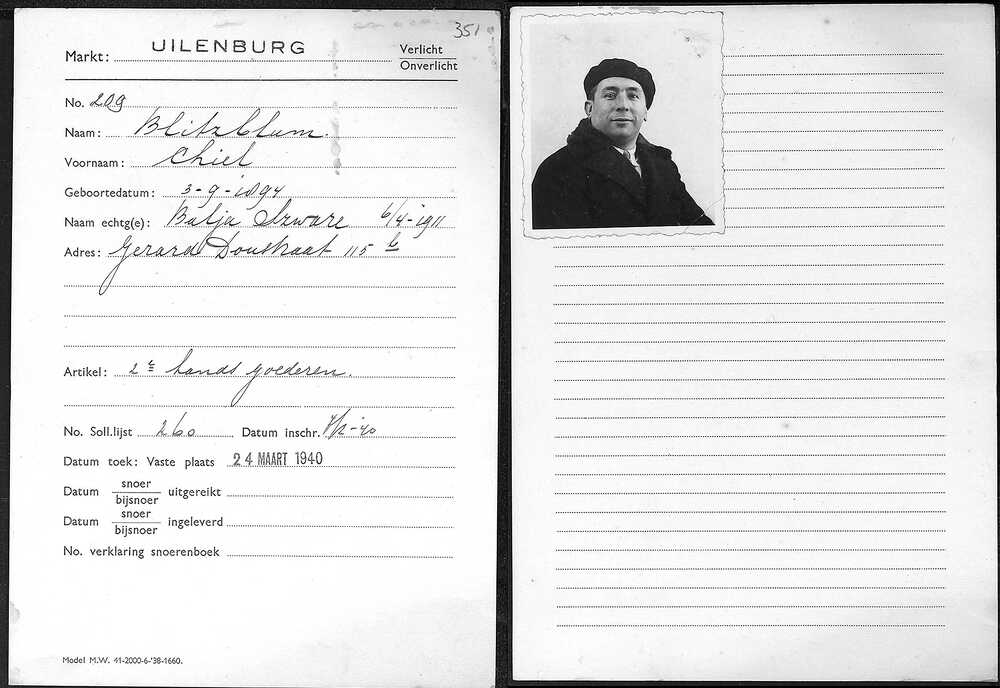 351
Markt: UILENBURG Verlicht
Onverlicht
No. 209
Naam: Blitzblum.
Voornaam: Chiel
Geboortedatum: 3-9-1894
Naam echtg(e): Batja 6/4-1911
Adres: Gerard Doustraat 115 b
Artikel: 2e hands goederen.
No. Soll.lijst 260 Datum inschr. -40
Datum toek: Vaste plaats 24 MAART 1940
Datum snoer
bijsnoer uitgereikt
Datum snoer
bijsnoer ingeleverd
No. verklaring snoerenboek
Model M.W. 41-2000-6-'38-1660.